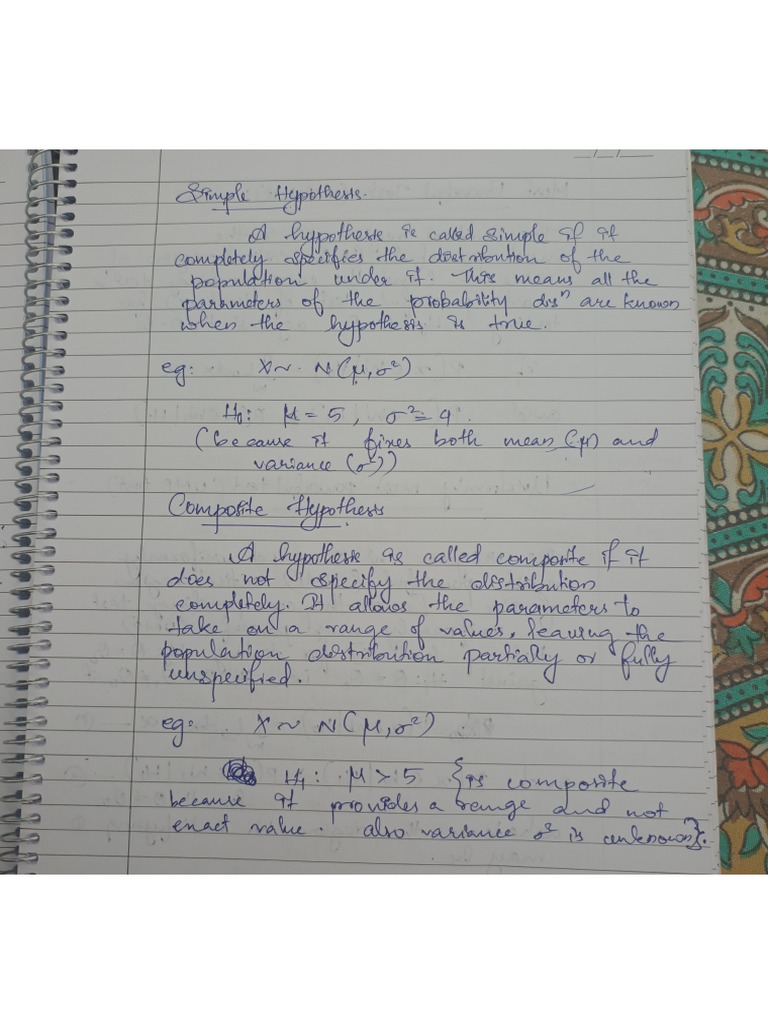 Simple Hypothesis.
A hypothesis is called simple if it
completely specifies the distribution of the
population under it. This means all the
parameters of the probability disⁿ are known
when the hypothesis is true.
eg: X ~ N(μ, σ²)
H₀: μ = 5, σ² = 4.
(because it fixes both mean (μ) and
variance (σ²))
Composite Hypothesis
A hypothesis is called composite if it
does not specify the distribution
completely. It allows the parameters to
take on a range of values, leaving the
population distribution partially or fully
unspecified.
eg: X ~ N(μ, σ²)
H₁: μ > 5 {is composite
because it provides a range and not
exact value. also variance σ² is unknown}.